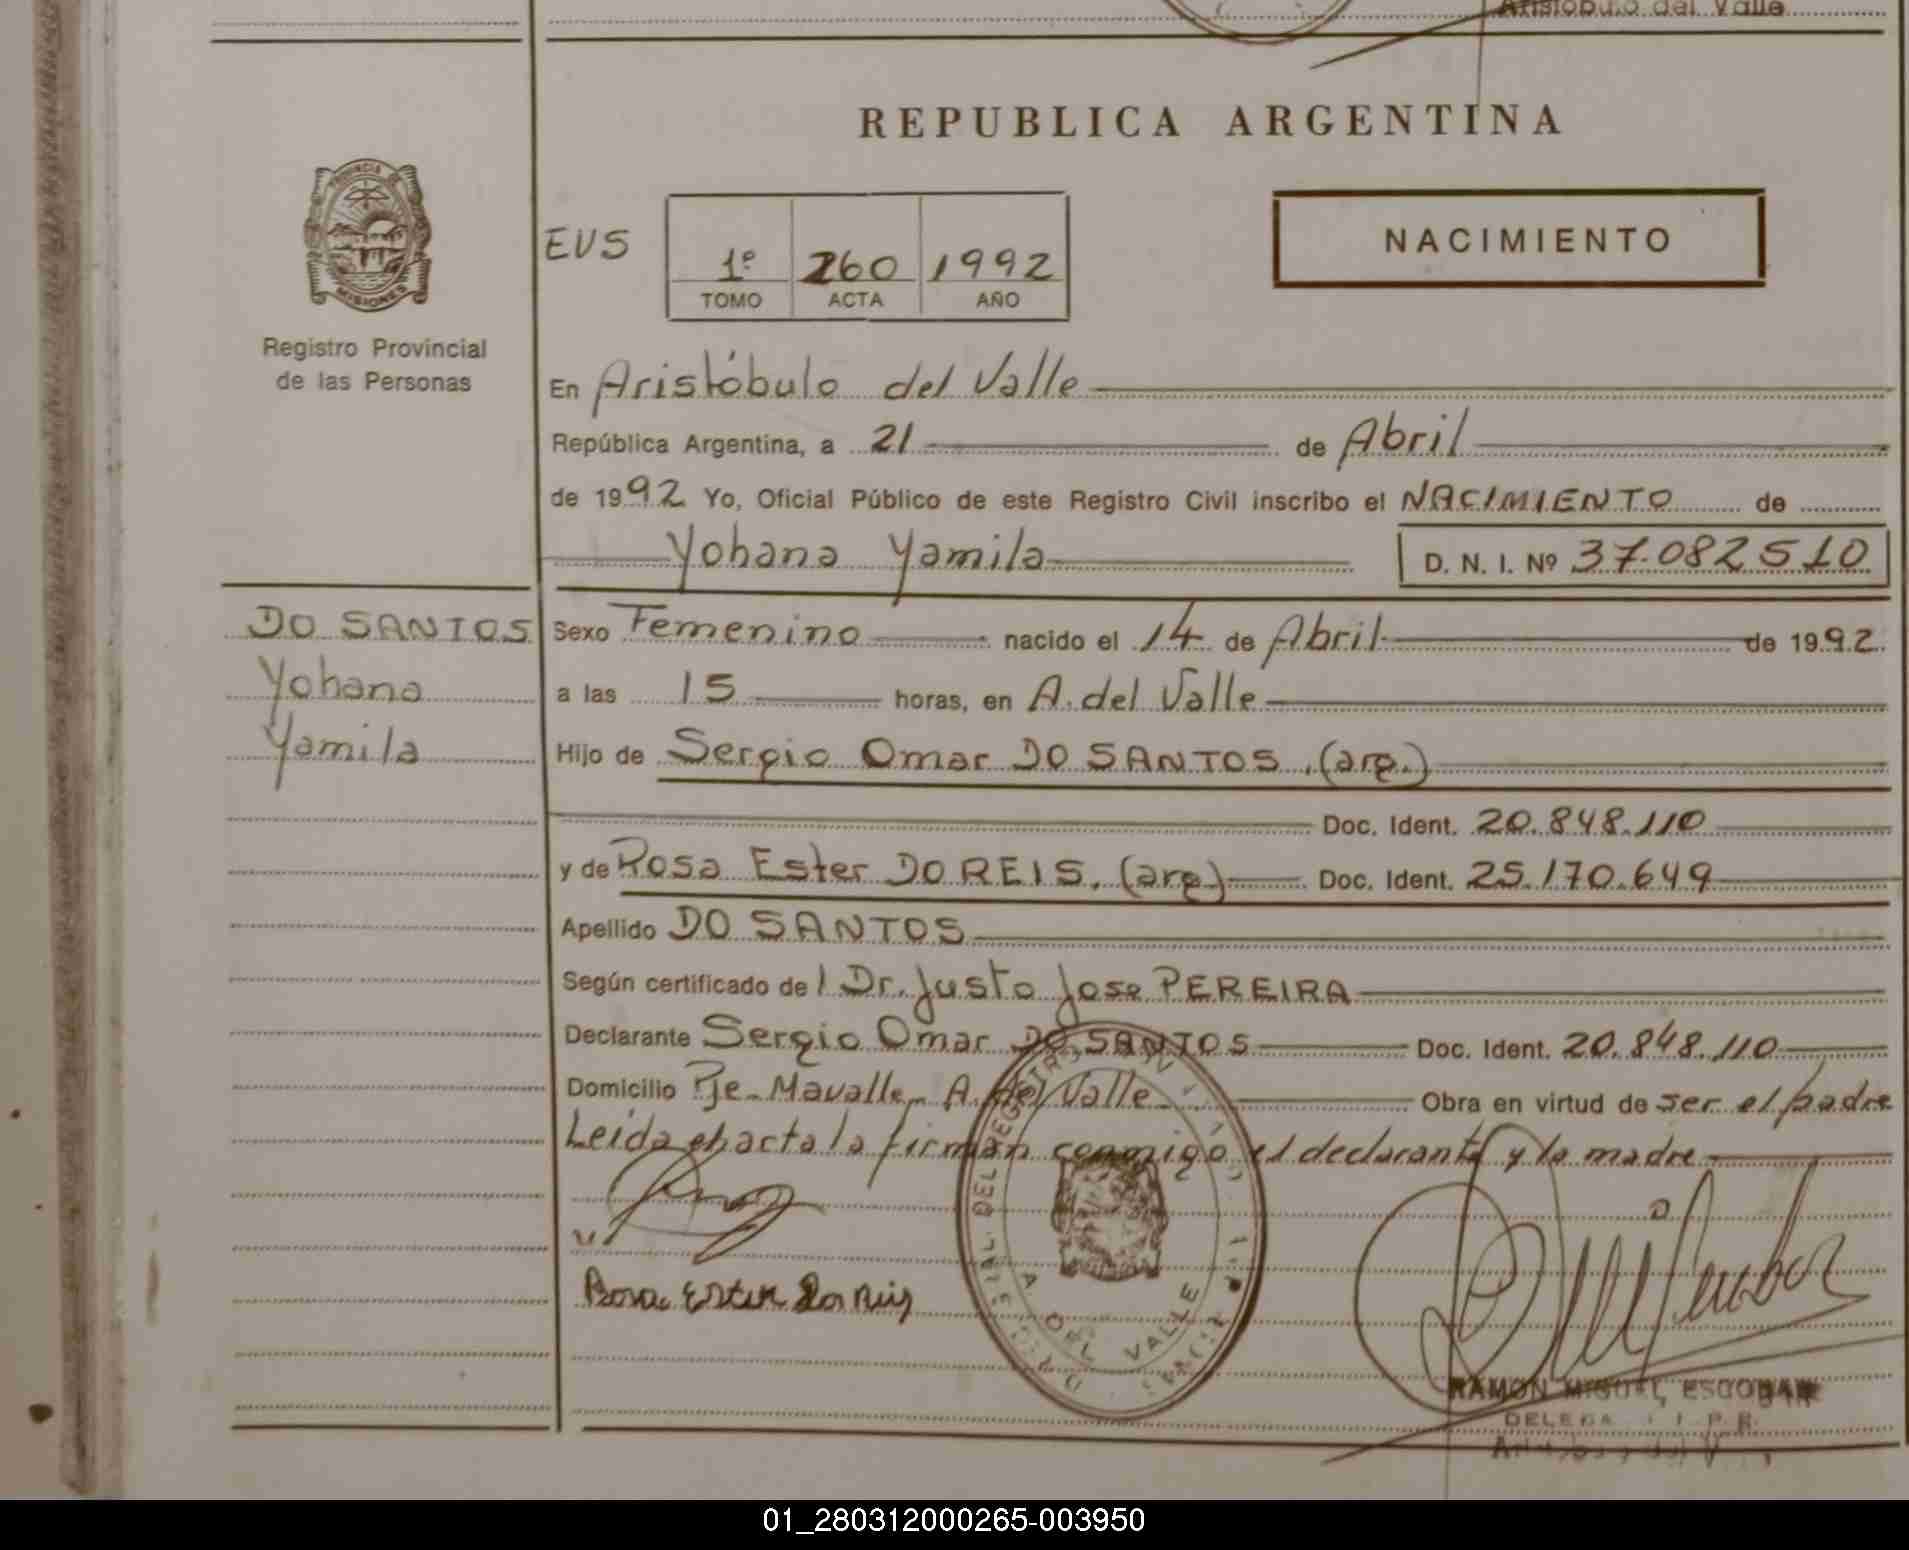 Aristóbulo del Valle
REPUBLICA ARGENTINA
PROVINCIA DE
MISIONES
Registro Provincial
de las Personas
EUS
1º 260 1992
TOMO ACTA AÑO
NACIMIENTO
En Aristóbulo del Valle
República Argentina, a 21 de Abril
de 1992 Yo, Oficial Público de este Registro Civil inscribo el NACIMIENTO de
Yohana Yamila D. N. I. Nº 37.082510
DO SANTOS
Yohana
Yamila
Sexo Femenino nacido el 14 de Abril de 1992
a las 15 horas, en A. del Valle
Hijo de Sergio Omar DO SANTOS. (arg.)
Doc. Ident. 20.848.110
y de Rosa Ester DO REIS. (arg) Doc. Ident. 25.170.649
Apellido DO SANTOS
Según certificado de l Dr. Justo Jose PEREIRA
Declarante Sergio Omar DO SANTOS Doc. Ident. 20.848.110
Domicilio Pje. Mavalle, A. del Valle Obra en virtud de ser el padre
Leida el acta la firman conmigo el declarante y la madre
Rosa Ester
A DEL VALLE
RAMON MIGUEL ESCOBAR
01_280312000265-003950